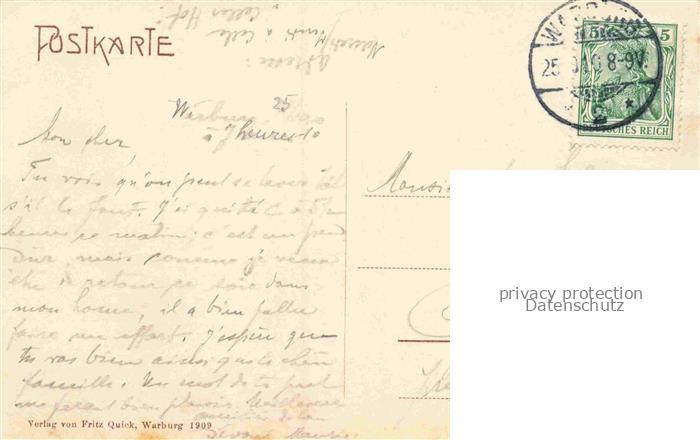 POSTKARTE
WARBURG
25
8-9V.
5
DEUTSCHES REICH
Warburg 25
à 7 heures
Mon cher
Tu vois qu'on peut se lever tôt
s'il le faut. J'ai quitté C. à 5 ½
heures ce matin; c'est un peu
dur, mais comme je veux
être de retour ce soir dans
mon home, il a bien fallu
faire un effort. J'espère que
tu vas bien ainsi que ta chère
famille. Un mot de ta part
me ferait bien plaisir. Meilleure
Maurice
Monsieur
privacy protection
Datenschutz
Verlag von Fritz Quick, Warburg 1909